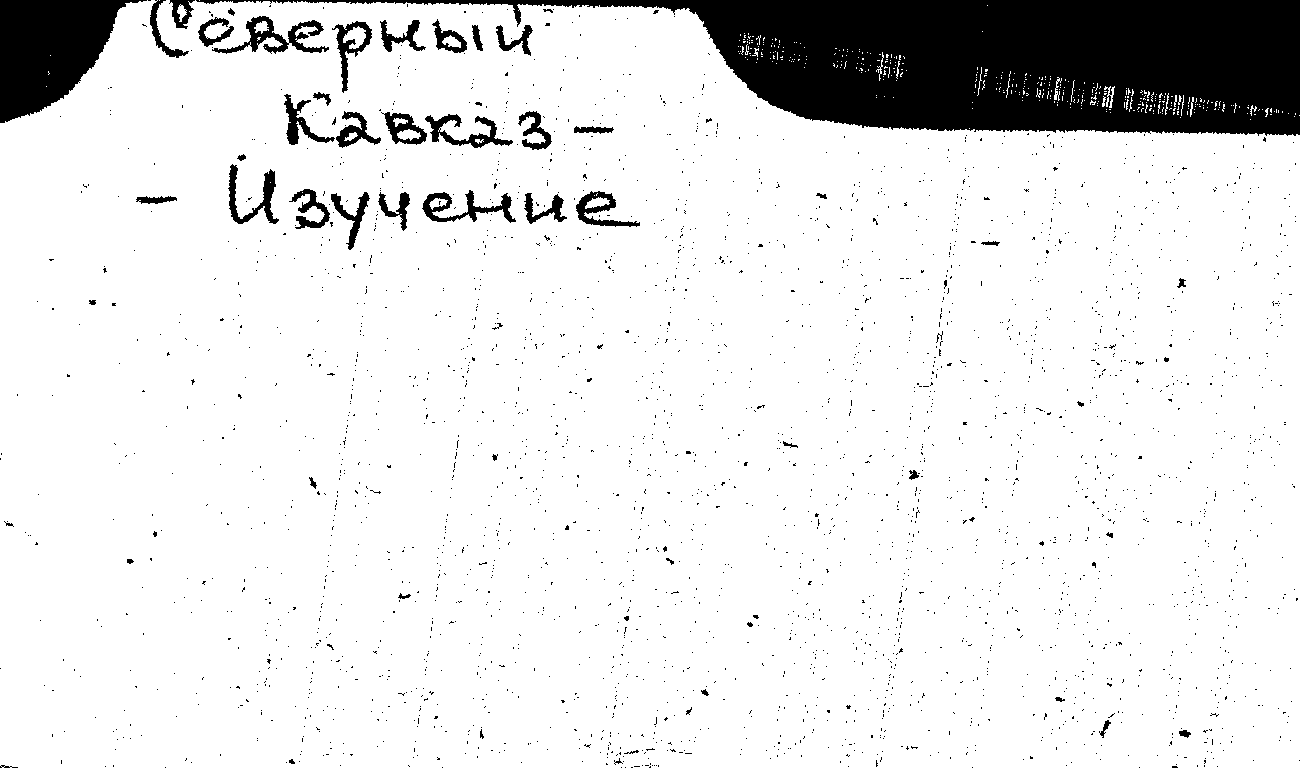 Северный
Кавказ –
– Изучение